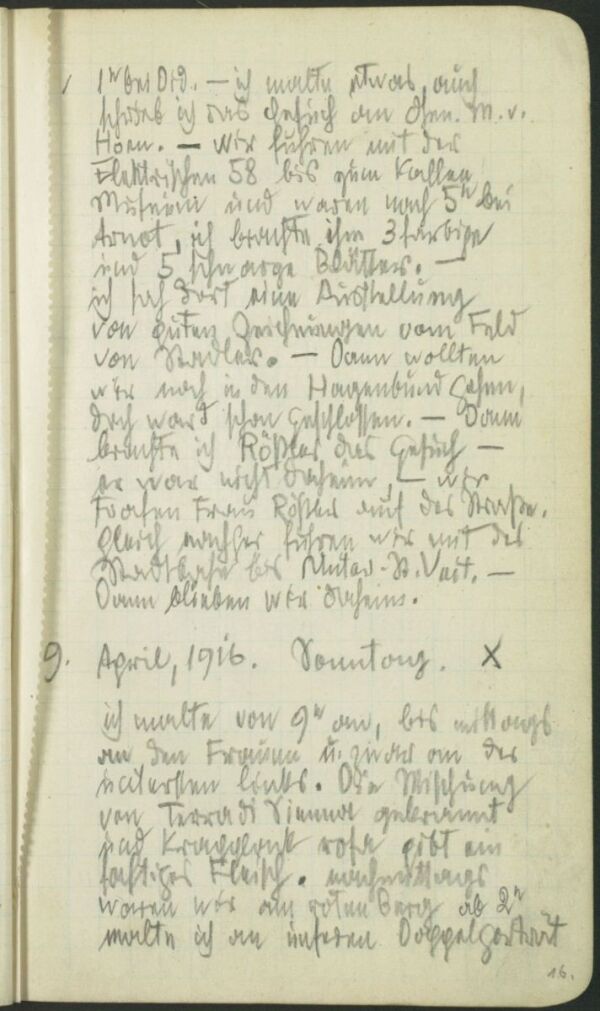 1ʰ bei Ord. — ich malte etwas, auch
schrieb ich das Gesuch an Gen. M. v.
Hoen. — wir fuhren mit der
Elektrischen 58 bis zum kaller
Museum und waren nach 5ʰ bei
Arnot, ich brachte ihm 3 farbige
und 5 schwarze Blätter. —
ich sah dort eine Ausstellung
von guten Zeichnungen vom Feld
von Stadler. — Dann wollten
wir noch in den Hagenbund gehen,
doch ward schon geschlossen. — Dann
brachte ich Rößler das Gesuch —
er war nicht daheim, — wir
trafen Frau Rößler auf der Straße.
gleich nachher fuhren wir mit der
Stadtbahn bis Unter-St. Veit. —
Dann blieben wir daheim.
9. April, 1916. Sonntag. X
ich malte von 9ʰ an, bis mittags
an den Frauen u. zwar an der
untersten links. Die Mischung
von Terra di Sienna gebrannt
und Krapplack rosa gibt ein
saftiges Fleisch. nachmittags
waren wir am roten Berg ab 2ʰ
malte ich an unseren Doppelporträt
16.